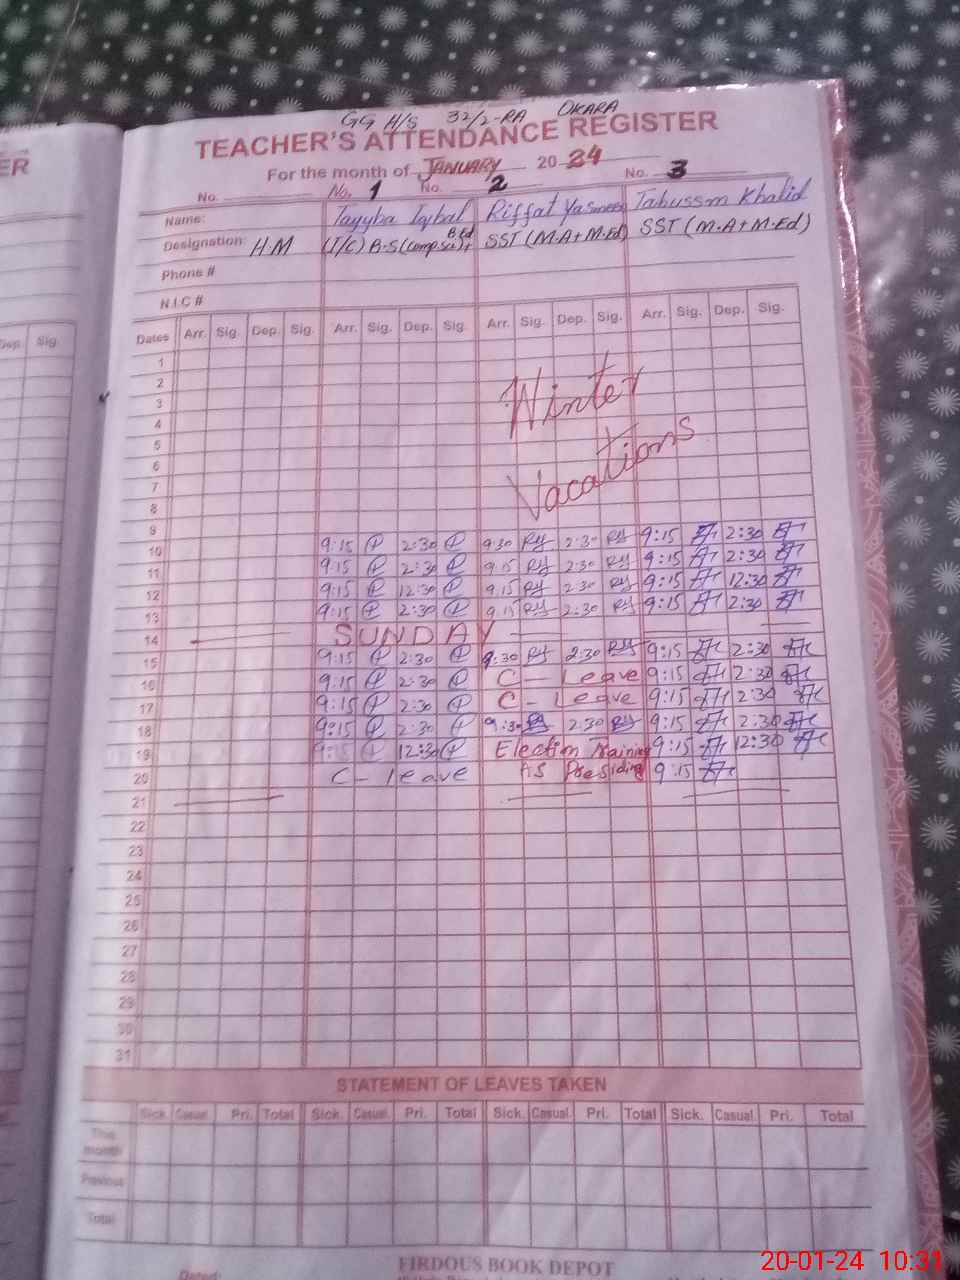 GG H/S 32/2-RA OKARA
TEACHER'S ATTENDANCE REGISTER
For the month of JANUARY 20 24
No. No. 1 No. 2 No. 3
Name: Tayyba Iqbal Riffat Yasmeen Tabussm Khalid
Designation: H.M (I/C) B.S(Comp.Sc)+ B.Ed SST (M.A+M.Ed) SST (M.A+M.Ed)
Phone #
N.I.C #
Dates Arr. Sig. Dep. Sig. Arr. Sig. Dep. Sig. Arr. Sig. Dep. Sig. Arr. Sig. Dep. Sig.
1
2
3
4
5
6
7
8
Winter
Vacations
9
10 9:15 2:30 9:30 2:30 9:15 2:30
11 9:15 2:30 9:15 2:30 9:15 2:30
12 9:15 12:30 9:15 2:30 9:15 12:30
13 9:15 2:30 9:15 2:30 9:15 2:30
14 SUNDAY
15 9:15 2:30 9:30 2:30 9:15 2:30
16 9:15 2:30 C - Leave 9:15 2:30
17 9:15 2:30 C - Leave 9:15 2:30
18 9:15 2:30 9:30 2:30 9:15 2:30
19 9:15 12:30 Election Training 9:15 12:30
20 C - leave AS Presiding 9:15
21
22
23
24
25
26
27
28
29
30
31
STATEMENT OF LEAVES TAKEN
Sick. Casual. Pri. Total Sick. Casual. Pri. Total Sick. Casual. Pri. Total Sick. Casual. Pri. Total
This month
Previous
Total
Dated:
FIRDOUS BOOK DEPOT
20-01-24 10:31